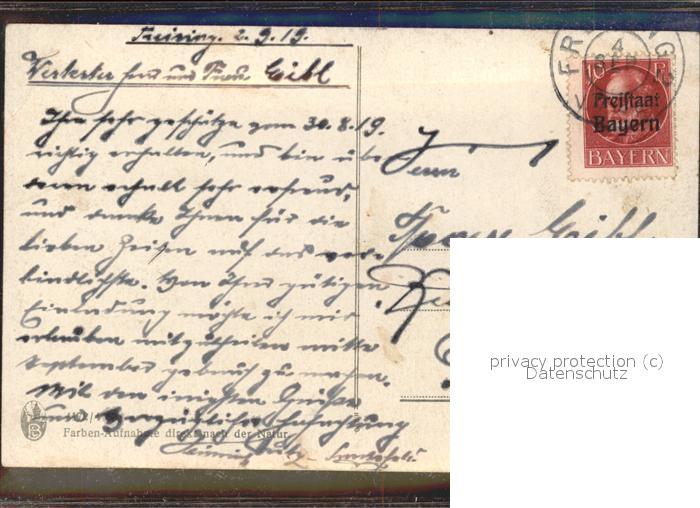 Freising. 2.9.19.
Wertester Herr und Frau Eibl
Ihr sehr geschätztes vom 30.8.19.
richtig erhalten, und bin über
deren erhalt sehr erfreud,
und danke Ihnen für die
lieben Zeilen auf das ver-
bindlichste. Von Ihrer gütigen
Einladung möchte ich mir
erlauben mitzutheilen mitte
September gebrauch zu machen.
Mit den innigsten Grüßen
und Vorzüglicher Hochachtung
Farben-Aufnahme direkt nach der Natur
Herrn
Eibl
FR
4
SEP
10 Pf
Freistaat
Bayern
BAYERN
privacy protection (c)
Datenschutz